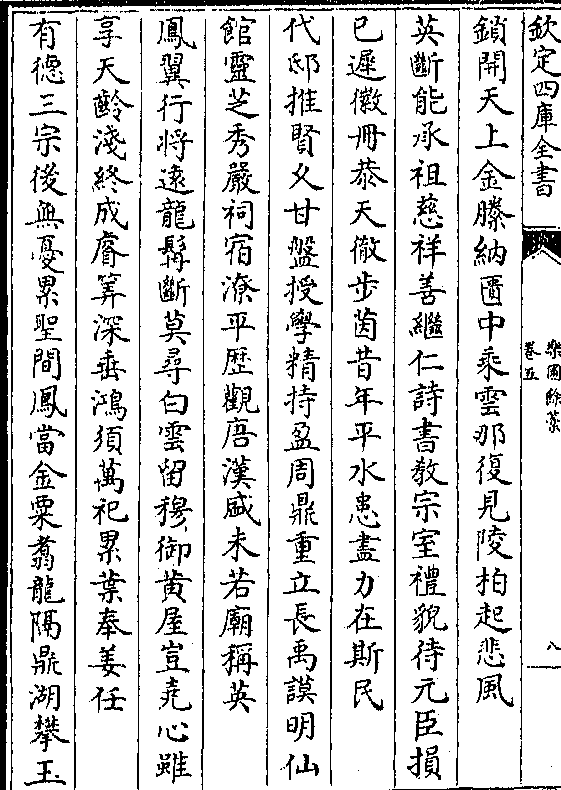 欽定四庫全書
樂圃餘藁
卷五
八
鎖開天上金縢納匱中乘雲那復見陵柏起悲風
英斷能承祖慈祥善繼仁詩書教宗室禮貌待元臣損
已遲徽冊恭天徹步茵昔年平水患盡力在斯民
代邸推賢乆甘盤授學精持盈周鼎重立長禹謨明仙
館靈芝秀嚴祠宿潦平歴觀唐漢盛未若廟稱英
鳳翼行將逺龍髯斷莫尋白雲留穆御黄屋豈堯心雖
享天齡淺終成睿筭深垂鴻須萬祀累葉奉姜任
有徳三宗後無憂累聖間鳳當金粟翥龍隔鼎湖攀玉